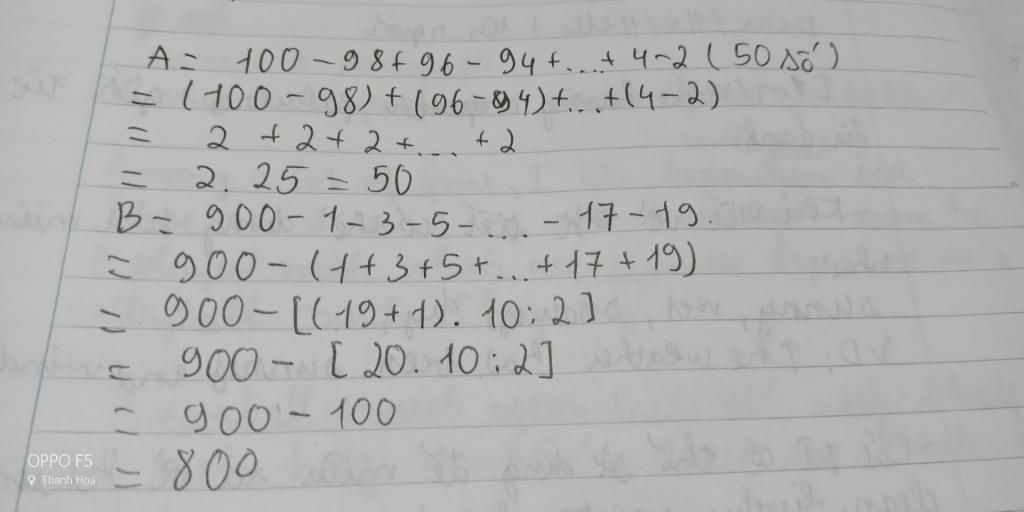 A = 100 - 98 + 96 - 94 + ... + 4 - 2 ( 50 số )
= (100 - 98) + (96 - 94) + ... + (4 - 2)
= 2 + 2 + 2 + ... + 2
= 2 . 25 = 50
B = 900 - 1 - 3 - 5 - ... - 17 - 19.
= 900 - (1 + 3 + 5 + ... + 17 + 19)
= 900 - [(19 + 1) . 10 : 2]
= 900 - [ 20 . 10 : 2]
= 900 - 100
= 800
OPPO F5
Thanh Hoá